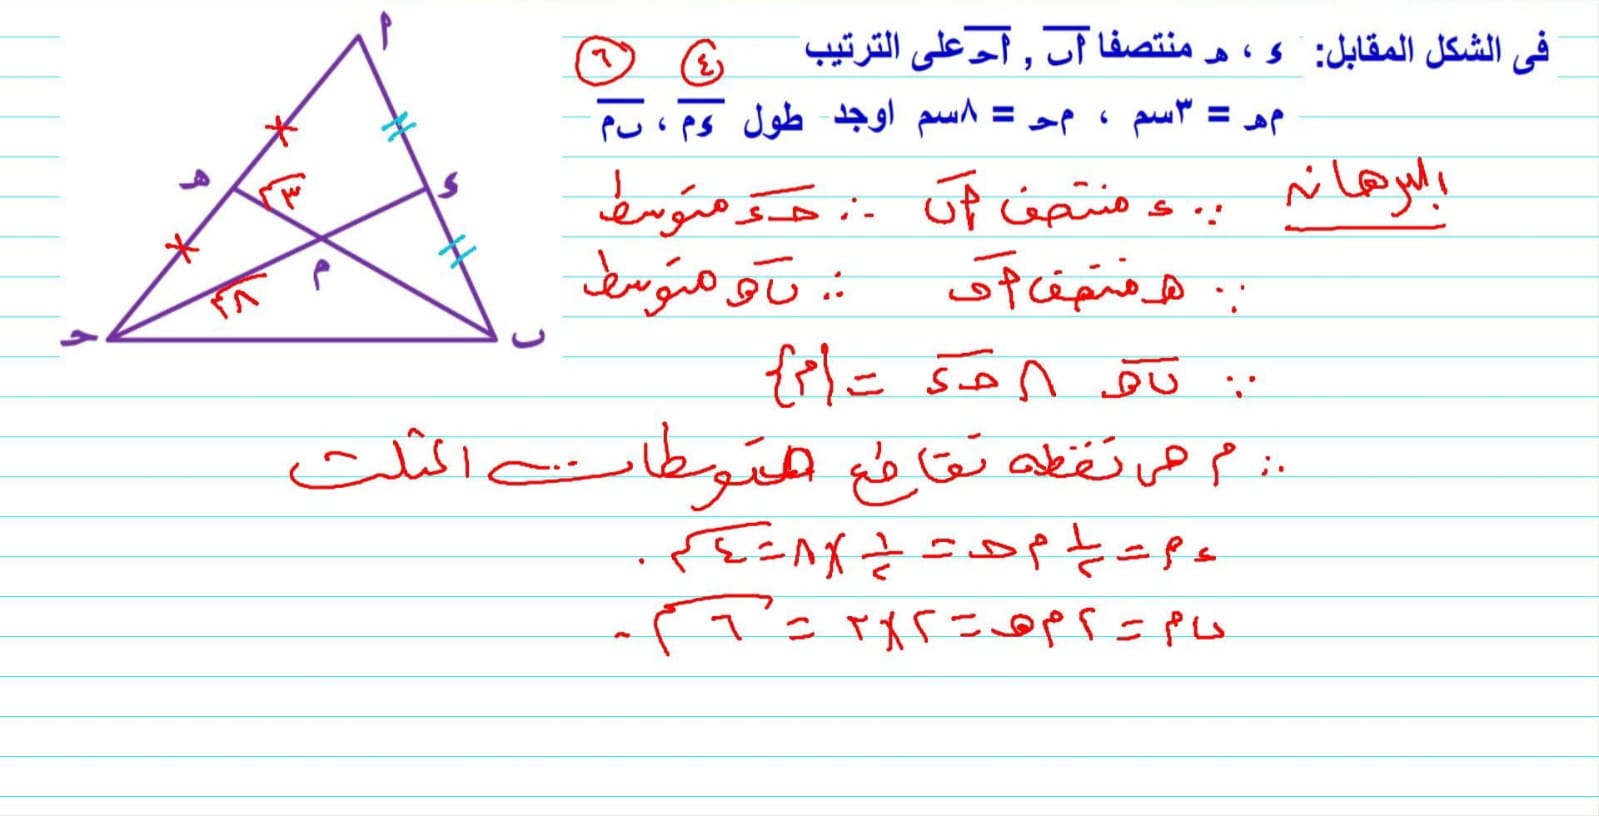 فى الشكل المقابل: ء ، هـ منتصفا أب , أحـ على الترتيب
٤ ٦
مهـ = ٣سم ، محـ = ٨سم اوجد طول ءم ، بم
أ
هـ ء
٣سم
م
٨سم
حـ ب
البرهان
∵ ء منتصف أب ∴ حـء متوسط
∵ هـ منتصف أحـ ∴ بهـ متوسط
∵ بهـ ∩ حـء = {م}
∴ م هى نقطه تقاطع متوسطات المثلث
ءم = ١/٢ محـ = ١/٢ × ٨ = ٤سم .
بم = ٢ مهـ = ٢ × ٣ = ٦سم .